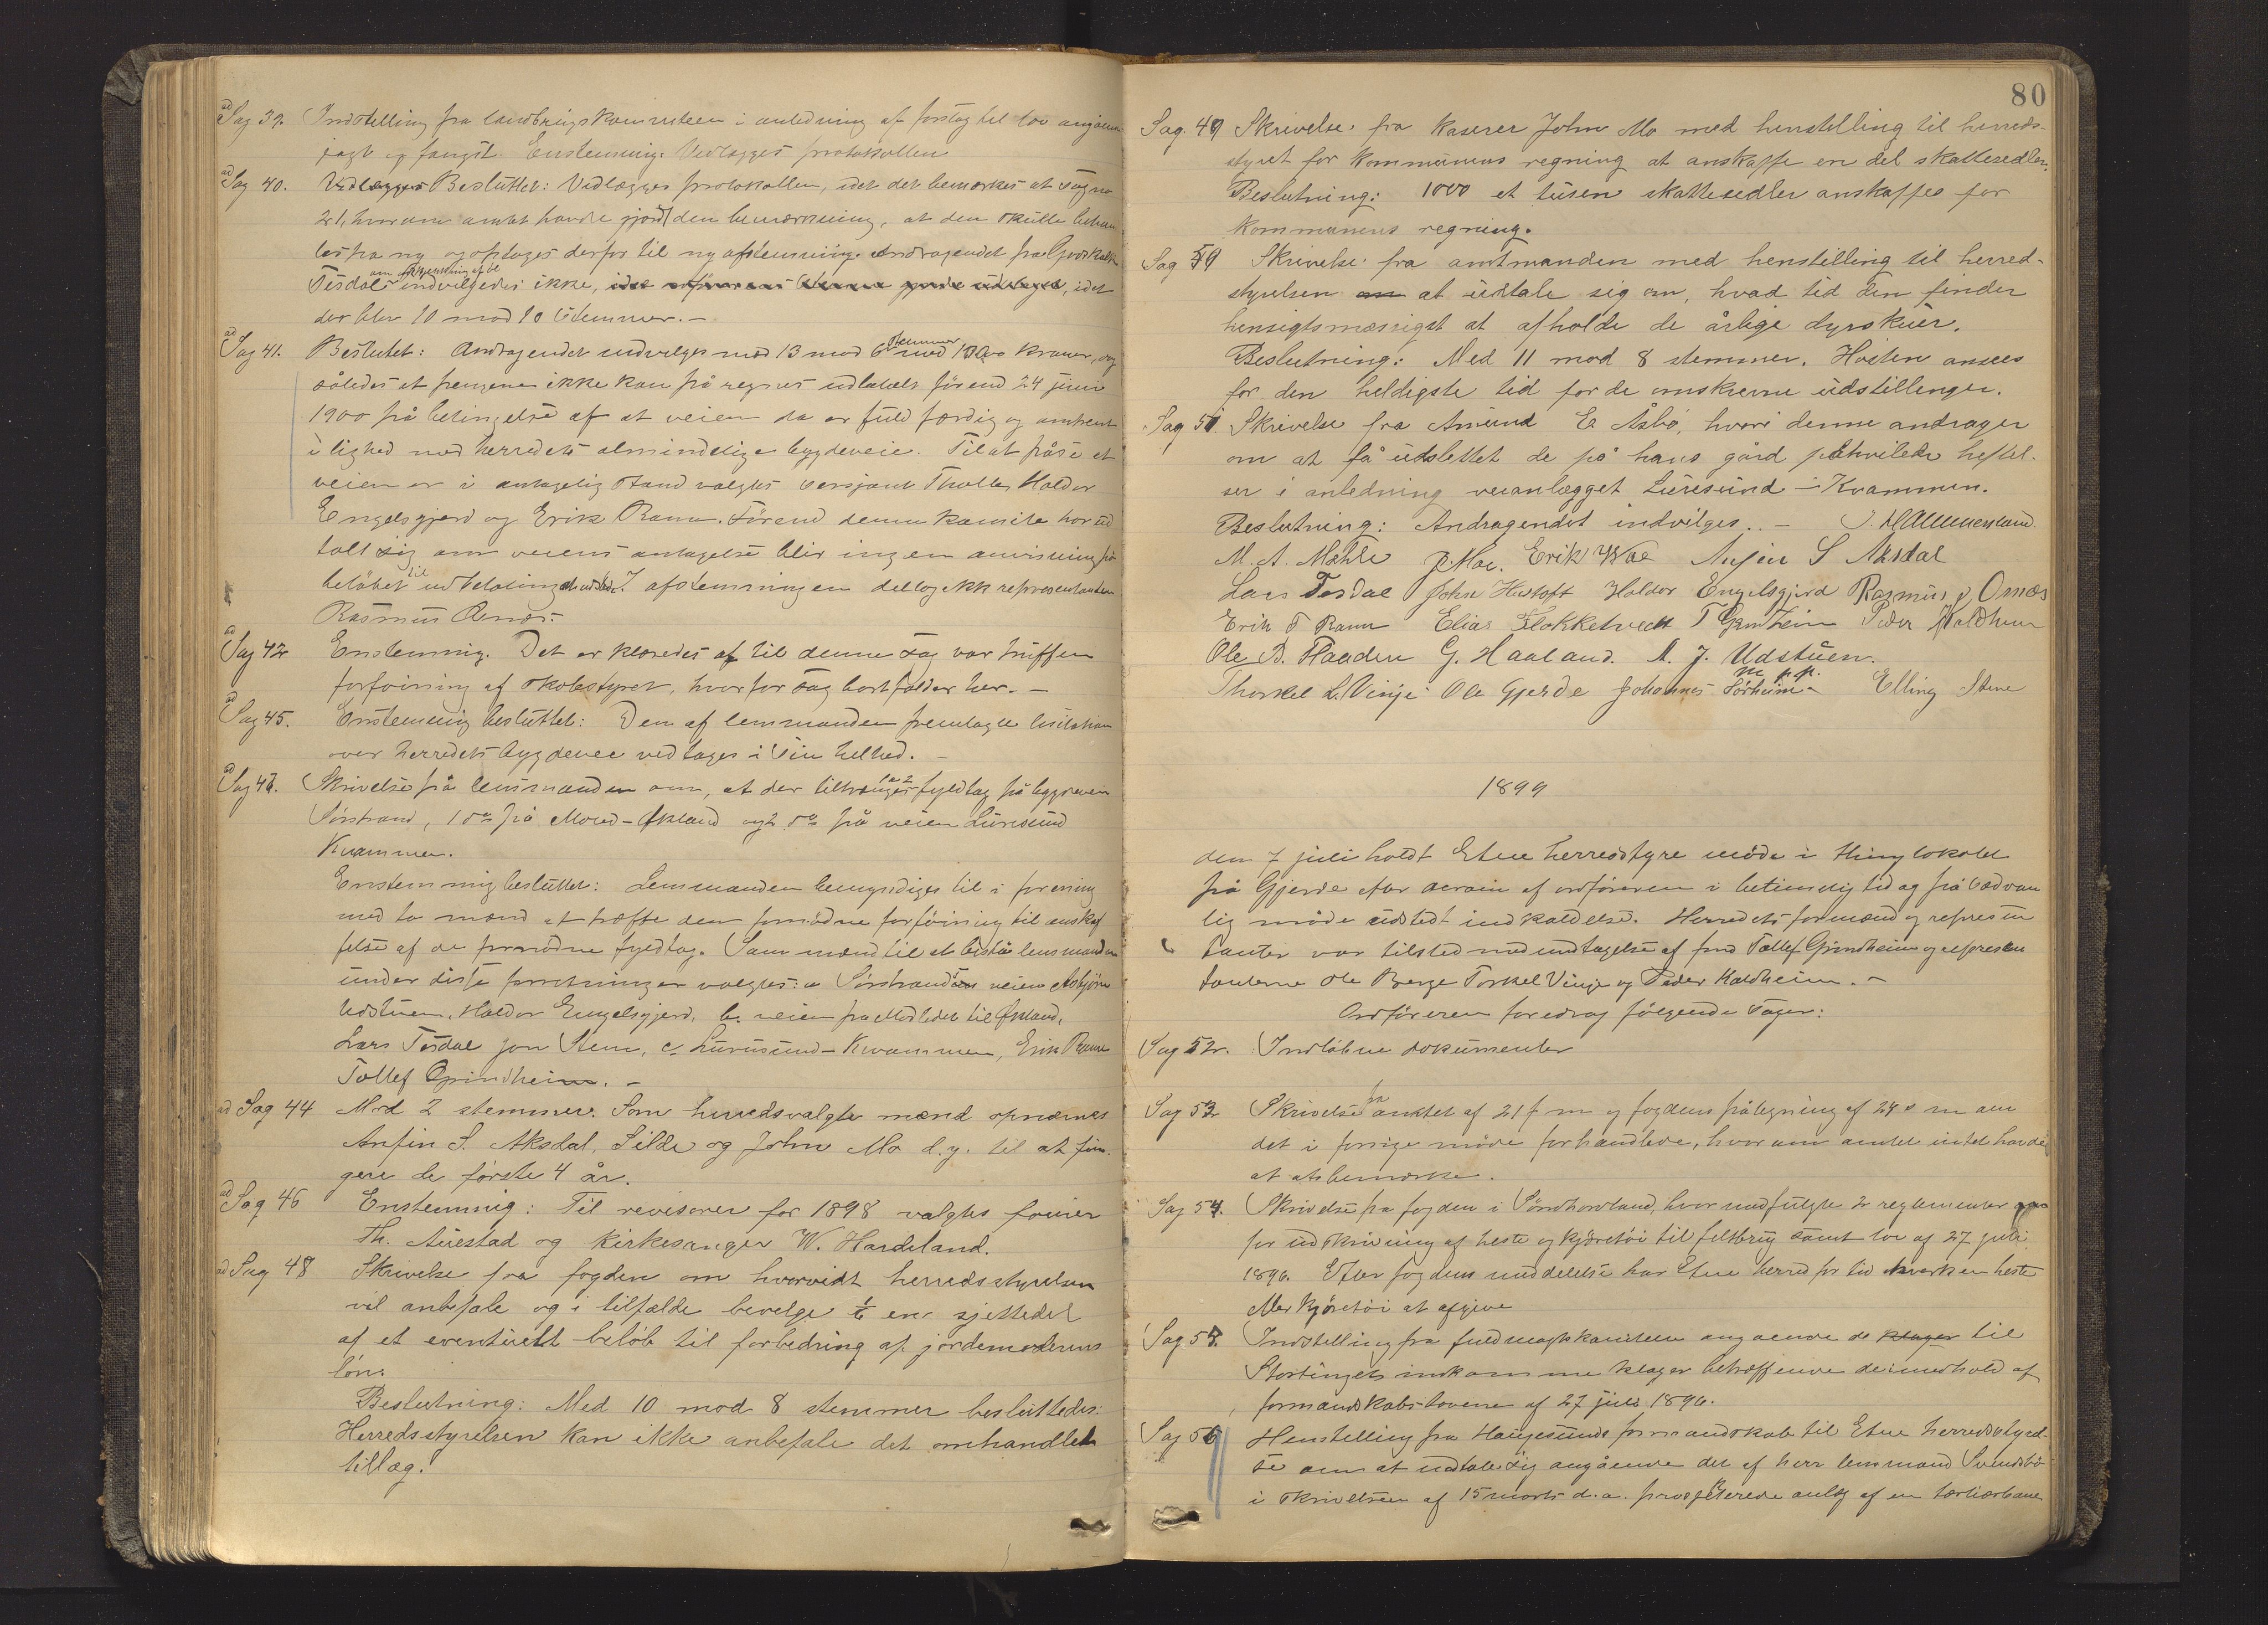 ad Sag 39. Indstilling fra landbrugskomiteen i anledning af forslag til lov angående
jagt og fangst. Enstemmig: Vedlægges protokollen
ad Sag 40. Vedlægges Besluttet: Vedlægges protokollen, idet det bemærkes at sag no
21, hvorom amtet havde gjort den bemærkning, at den skulle behand
les på ny og optages derfor til ny afstemning. Andragendet fra
Tesdal indvilgedes ikke, idet
der blev 10 mod 10 stemmer. –
ad Sag 41. Beslutet: Andragendet indvilges med 13 mod 6 stemmer med 1300 kroner, dog
således at pengene ikke kan på regnes udbetalt förend 24 juni
1900 på betingelse af at veien da er fuld færdig og omtrent
i lighed med herredets almindelige bygdeveie. Til at påse at
veien er i antagelig stand valgtes Haldor
Engelsgjerd og Erik Ramn. Förend denne komite har ud
talt sig om veiens antagelse blir ingen anvisning på
belöbet til udbetaling udstedt. I afstemningen deltog ikk repræsentanten
Rasmus Ørnæs.
ad Sag 42 Enstemmig. Det er klaredes at til denne sag var truffen
forföining af skolestyret, hvorfor sag bortfalder her. –
ad Sag 45. Enstemmig besluttet: Den af lensmanden fremlagte
over herredets bygdeveie vedtages i sin helhed. –
ad Sag 47. Skrivelse frå lensmanden om, at der tiltrænges 1 a 2 fyldtag på bygdeveien
Sörstrand, 1 do på Moved-Økland og 2 do på veien Luresund
Kvammen.
Enstemmig besluttet: Lensmanden bemyndiges til i forening
med to mænd at træffe den fornödne forföining til anskaf
felse af de fornödne fyldtag. Som mænd til at bistå lensmanden
under disse forretninger valgtes: a Sörstrands veien Asbjörn
Udstuen, Haldor Engelsgjerd, b. veien fra til Økland,
Lars Tesdal Jon Stene, c Luresund-Kvammen, Erik Ramn
Tollef Grindheim. –
ad Sag 44 Mod 2 stemmer. Som herredsvalgte mænd opnævnes
Anfin S. Aksdal, Silde og John Mo d.y. til at fun-
gere de förste 4 år.
ad Sag 46 Enstemmig: Til revisorer for 1898 valgtes
Th. Airestad og kirkesanger W. Hardeland.
ad Sag 48 Skrivelse fra fogden om hvorvidt herredsstyrelsen
vil anbefale og i tilfælde bevilge 1/6 en sjettedel
af et eventuelt belöb til forbedring af jordemoderens
lön.
Beslutning: Med 10 mod 8 stemmer besluttedes:
Herredsstyrelsen kan ikke anbefale det omhandlede
tillæg.
80
Sag. 49 Skrivelse fra kaserer John Mo med henstilling til herreds-
styret for kommunens regning at anskaffe en del skattesedler.
Beslutning: 1000 et tusen skattesedler anskaffes for
kommunens regning.
Sag 50 Skrivelse fra amtmanden med henstilling til herred-
styrelsen om at udtale sig om, hvad tid den finder
hensigtsmæssigst at afholde de årlige dyrskuer.
Beslutning: Med 11 mod 8 stemmer. Hösten ansees
for den heldigste tid for de omskrevne udstillinger.
Sag 51 Skrivelse fra Amund E Åsbö, hvori denne andrager
om at få udslettet de på hans gård påhvilede heftel-
ser i anledning veianlægget Luresund – Kvammen.
Beslutning: Andragendet indvilges. –
M. A. Mæhle J. Moe. Erik Moe Anfin S Aksdal
Lars Tesdal John Hustoft Haldor Engelsgjerd Rasmus Ørnæs
Erik T Ramn Elias Flokketvedt T Grindheim Peder Haldheim
Ole B. Haaden G. Haaland. A. J. Udstuen.
Thorkel L. Vinje Ole Gjerde Johannes Sörheim m p.p. Elling Stene
1899
den 7 juli holdt Etne herredstyre möde i thinglokalet
på Gjerde efter ordföreren i betimelig tid og på sædvan
lig måde udstedt indkaldelse. Herredets formænd og represen
tanter var tilsted med undtagelse af fmd Tollef Grindheim og represen
tanterne Ole Berge Torkel Vinje og Peder Haldheim. –
Ordföreren foredrog fölgende sager:
Sag 52. Indlöbne dokumenter
Sag 53 Skrivelse fra amtet af 21 f m og fogdens påtegning af 24 s m om
det i forrige möde forhandlede, hvorom amtet intet havde
at bemærke.
Sag 54. Skrivelse fra fogden i Söndhordland, hvor medfulgte 2 reglementer
for udskrivning af heste og kjöretöi til feltbrug samt lov af 27 juli
1896. Efter fogdens meddelelse har Etne herred for tid hverken heste
eller kjöretöi at afgive
Sag 55. Indstilling fra fuldmagtskomiteen angående de klager til
Stortinget indkomme klager betræffende de i medhold af
formandskabslovene af 27 juli 1896.
Sag 56 Henstilling fra Haugesunds formandskab til Etne herredsstyrel-
se om at udtale sig angående det af herr lensmand Svendsbö
i skrivelsen af 15 marts d. a. prosjekterede anlæg af en tertiærbane